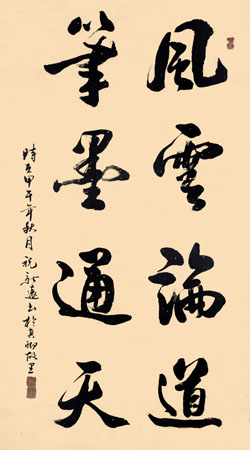 風雲論道
筆墨通天
時在甲午年秋月祝
書於
故里